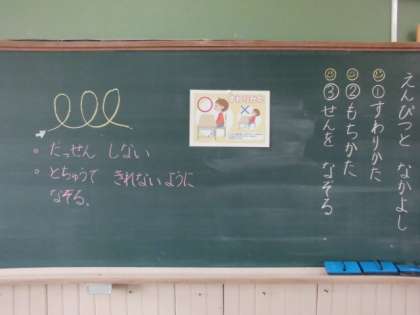 えんぴつと なかよし
①すわりかた
②もちかた
③せんを なぞる
○ だっせん しない
○ とちゅうで きれないように
なぞる。